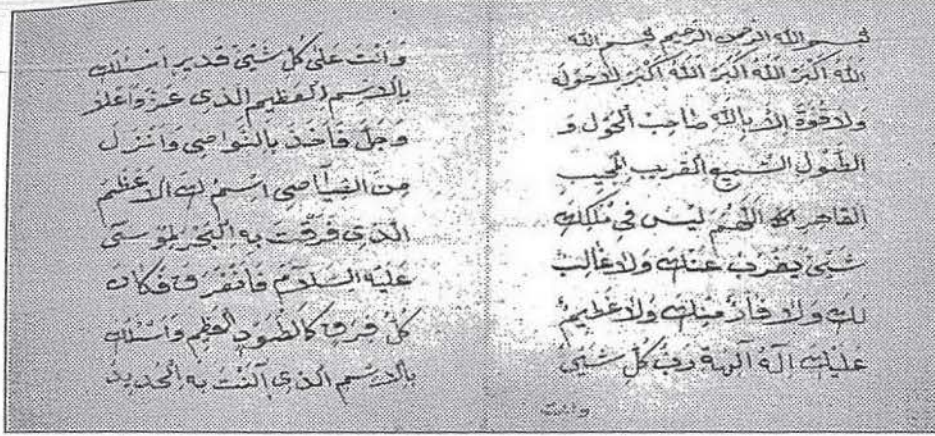 بسم الله الرحمن الرحيم بسم الله
اَللهُ اَكْبَرُ اَللهُ اَكْبَرُ اَللهُ اَكْبَرُ لاَحَوْلَ
وَلاَ قُوَّةَ اِلاَّ بِاللهِ صَاحِبُ الْحَوْلِ وَ
الطَّوْلِ السَّمِيعِ الْقَرِيبِ الْمُجِيبِ
الْقَاهِرِ اللَّهُمَّ لَيْسَ فِي مُلْكِكَ
شَيْئٌ يَعْزُبُ عَنْكَ وَلاَ غَالِبٌ
لَكَ وَلاَ فَارٌّ مِنْكَ وَلاَ عَظِيمٌ
عَلَيْكَ اِلَهُ آلِهَةِ رَبُّ كُلِّ شَيْئٍ
وانت
وَاَنْتَ عَلَى كُلِّ شَيْئٍ قَدِيرٍ اَسْئَلُكَ
بِالاِسْمِ الْعَظِيمِ الَّذِي عَزَّ وَاعْلاَ
وَجَلَّ فَاَخَذَ بِالنَّوَاصِي وَاَنْزَلَ
مِنَ الصَّيَاصِي اِسْمُكَ الاَعْظَمُ
الَّذِي فَرَقْتَ بِهِ الْبَحْرَ لِمُوسَى
عَلَيْهِ السَّلاَمُ فَانْفَرَقَ فَكَانَ
كُلُّ فِرْقٍ كَالطَّوْدِ الْعَظِمِ وَاَسْئَلُكَ
بِالاِسْمِ الَّذِي اَلَنْتَ بِهِ الْحَدِيدَ